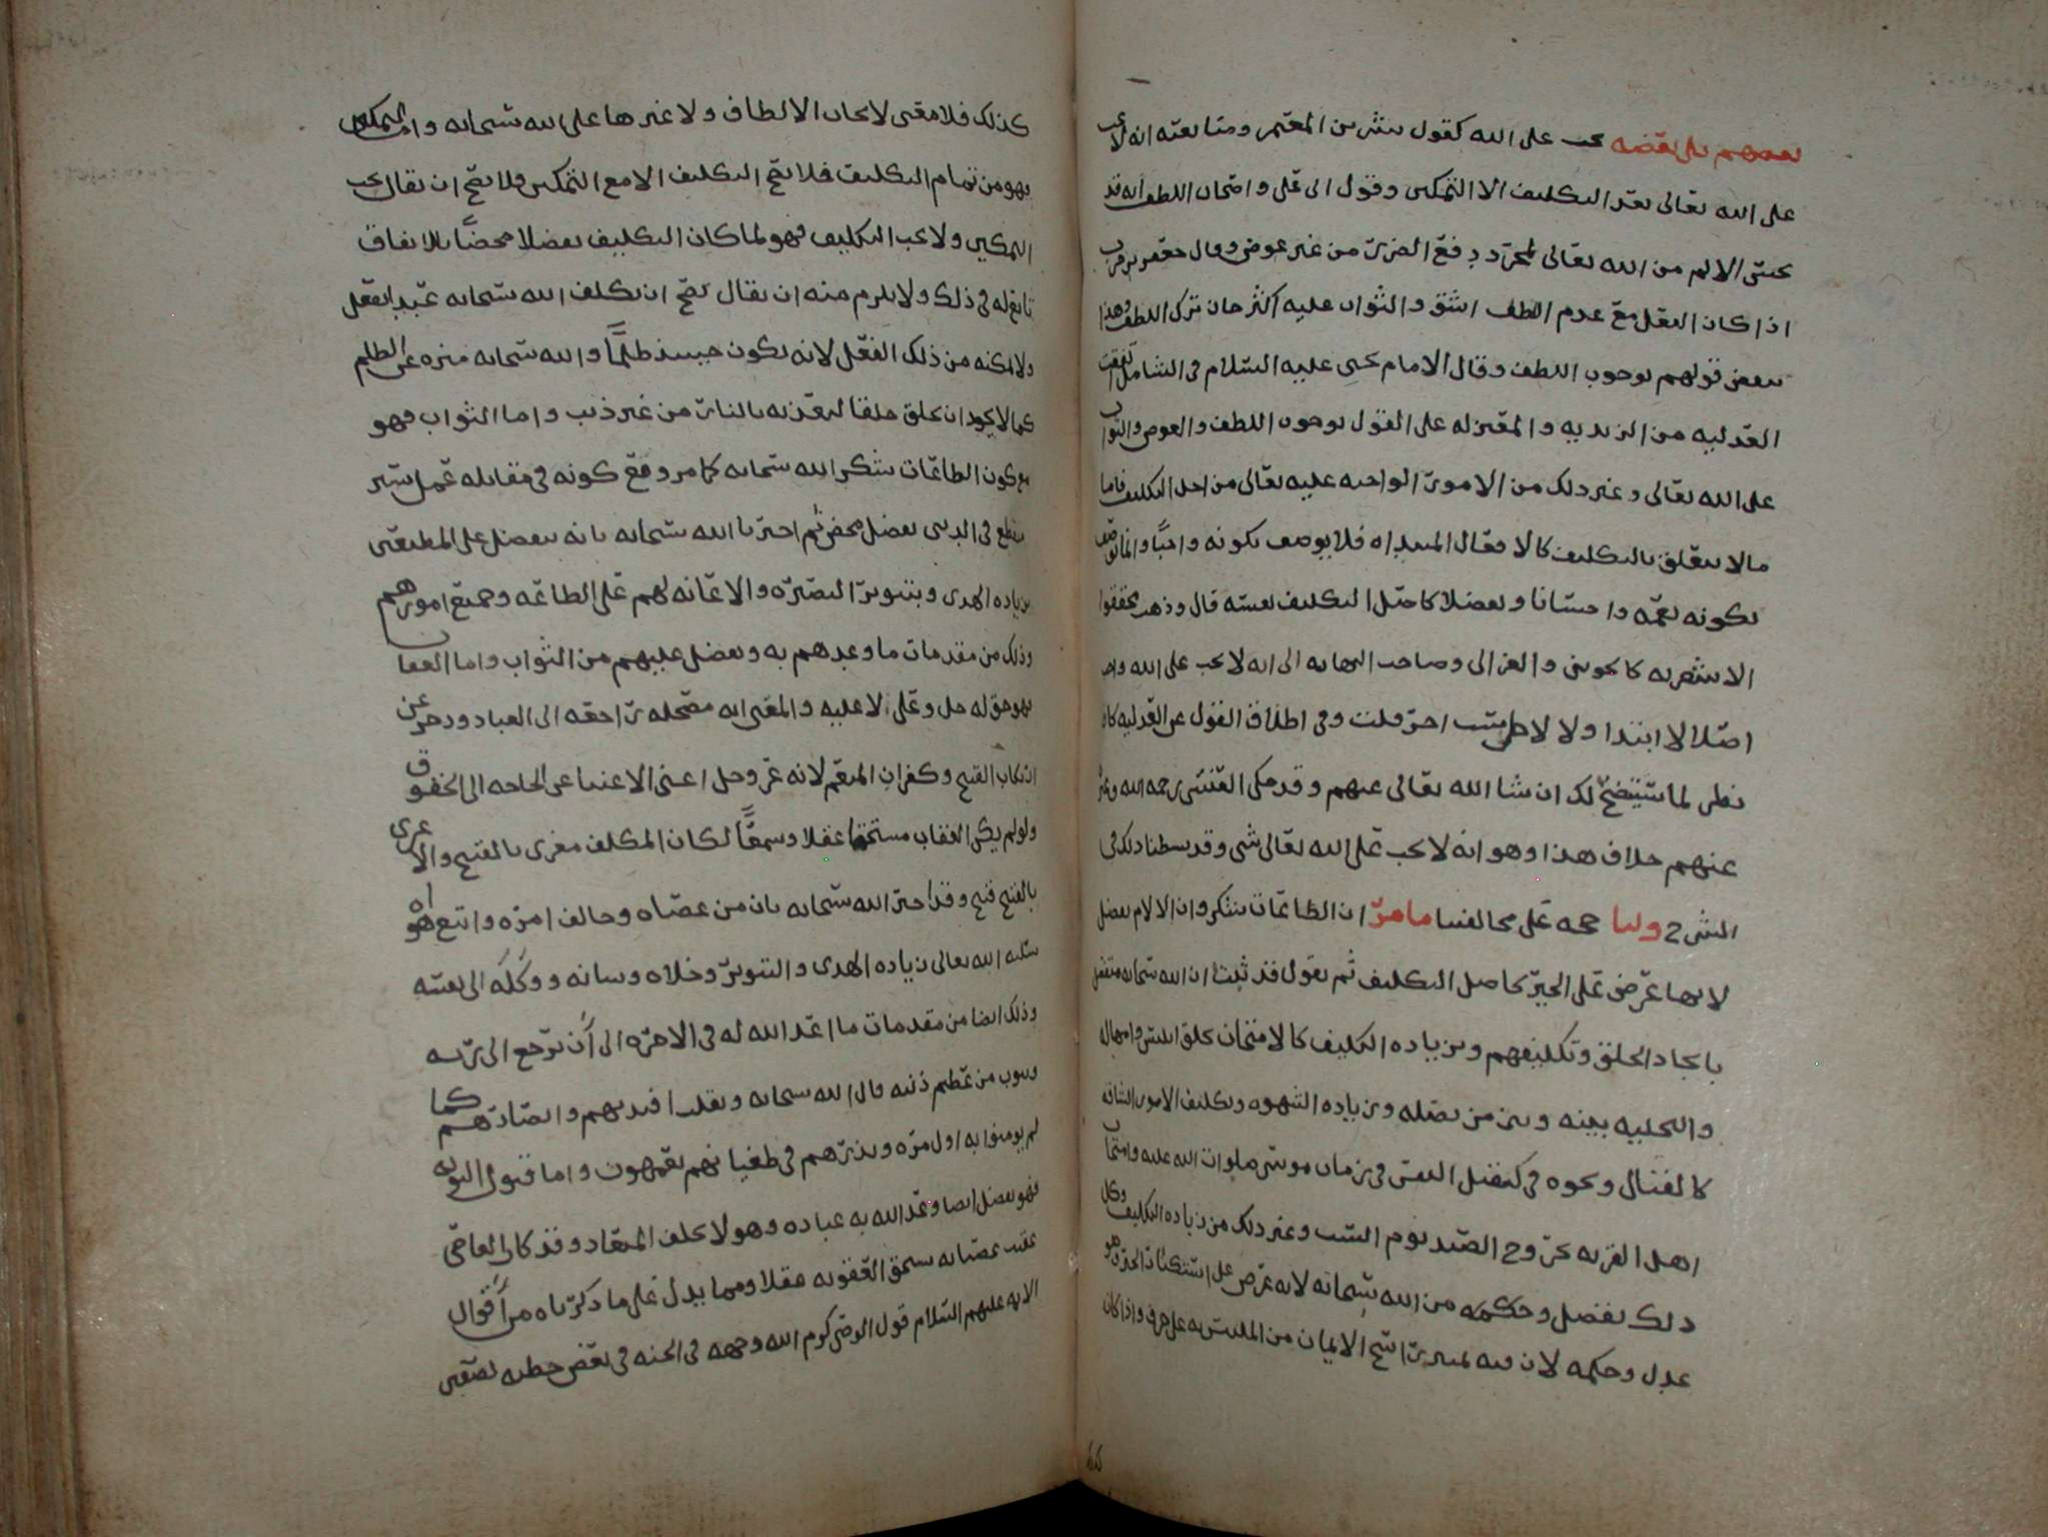 بعضهم بل بعضه يجب على الله كقول بشر بن المعتمر ومتابعته انه لا يجب
على الله تعالى بعد التكليف الا التمكين وقول ابي علي واصحاب اللطف انه قد
يحسن الالم من الله تعالى لمجرد دفع الضرر من غير عوض وقال جعفر بن حرب
اذا كان الفعل مع عدم اللطف اشق والثواب عليه اكثر جاز ترك اللطف وهذا
بعض قولهم بوجوب اللطف وقال الامام يحيى عليه السلام في الشامل اتفقت
العدليه من الزيديه والمعتزله على القول بوجوب اللطف والعوض والثواب
على الله تعالى وغير ذلك من الامور الواجبه عليه تعالى من اجل التكليف فاما
مالا يتعلق بالتكليف كالافعال المبتداه فلا يوصف بكونه واجبًا وانما يوصف
بكونه نعمه واحسانا وتفضلا كاصل التكليف نفسه قال وذهب محققوا
الاشعريه كالجويني والغزالي وصاحب النهايه الى انه لا يجب على الله واجب
اصلا لا ابتدا ولا لاجل سبب اخر قلت وفي اطلاق القول عن العدليه كافه
نظر لما سيتضح لك ان شا الله تعالى عنهم وقد حكى العنسي رحمه الله وغيره
عنهم خلاف هذا وهو انه لا يجب على الله تعالى شي وقد بسطنا ذلك في
الشرح ولنا حجه على مخالفينا ما مر ان الطاعات شكر وان الالام تفضل
لانها عرض على الخير كاصل التكليف ثم نقول قد ثبت ان الله سبحانه متفضل
بايجاد الخلق وتكليفهم وبزياده التكليف كالامتحان بخلق ابليس وامهاله
والتخليه بينه وبين من يضله وبزياده الشهوه وتكليف الامور الشاقه
كالقتال ونحوه في كقتل النفس في زمان موسى صلوات الله عليه وامتحان
اهل القريه بخروج الصيد يوم السبت وغير ذلك من زياده التكليف وكل
ذلك تفضل وحكمه من الله سبحانه لانه عرض على استكثار الخير وهو
عدل وحكمه لان فيه تمييز راسخ الايمان من الملتبس به على حرف واذا كان
كذلك فلا معنى لايجاب الالطاف ولا غيرها على الله سبحانه واما التمكين
فهو من تمام التكليف فلا يصح التكليف الا مع التمكين ولا يصح ان يقال يجب
التمكين ولا يجب التكليف فهو لما كان التكليف تفضلا محضًا بلا اتفاق
تابع له في ذلك ولا يلزم منه ان يقال يصح ان يكلف الله سبحانه عبيدا بفعل
ولا يمكنه من ذلك الفعل لانه يكون حينئذ ظلمًا والله سبحانه منزه عن الظلم
كما لا يجوز ان يخلق خلقا ليعذبه بالنار من غير ذنب واما الثواب فهو
مع كون الطاعات شكرا لله سبحانه كما مر وقع كونه في مقابله عمل يسير
منقطع في الدنيا تفضل محض ثم اخبرنا الله سبحانه بانه يتفضل على المطيعين
بزياده الهدى وبتنوير البصيره والاعانه لهم على الطاعه وجميع امورهم
وذلك من مقدمات ما وعدهم به وتفضل عليهم من الثواب واما العقاب
فهو حق له جل وعلى لا عليه والمعنى انه مصلحه راجعه الى العباد وزجر عن
ارتكاب القبيح وكفران المنعم لانه عز وجل اغنى الاغنيا عن الحاجه الى الحقوق
ولو لم يكن العقاب مستحقا عقلا وسمعًا لكان المكلف مغرى بالقبيح والاغرى
بالقبيح قبيح وقد اخبر الله سبحانه بان من عصاه وخالف امره واتبع هواه
سلبه الله تعالى زياده الهدى والتنوير وخلاه وشانه ووكله الى نفسه
وذلك ايضا من مقدمات ما اعد الله له في الاخره الى أن يرجع الى ربه
ويتوب من عظيم ذنبه قال الله سبحانه ونقلب افئدتهم وابصارهم كما
لم يومنوا به اول مره ونذرهم في طغيانهم يعمهون واما قبول التوبه
فهو تفضل ايضا وعد الله به عباده وهو لا يخلف الميعاد وقد كان العاصي
عقيب عصيانه يستحق العقوبه عقلا ومما يدل على ما ذكرناه من أقوال
الائمه عليهم السلام قول الوصي كرم الله وجهه في الجنه في بعض خطبه بصفين